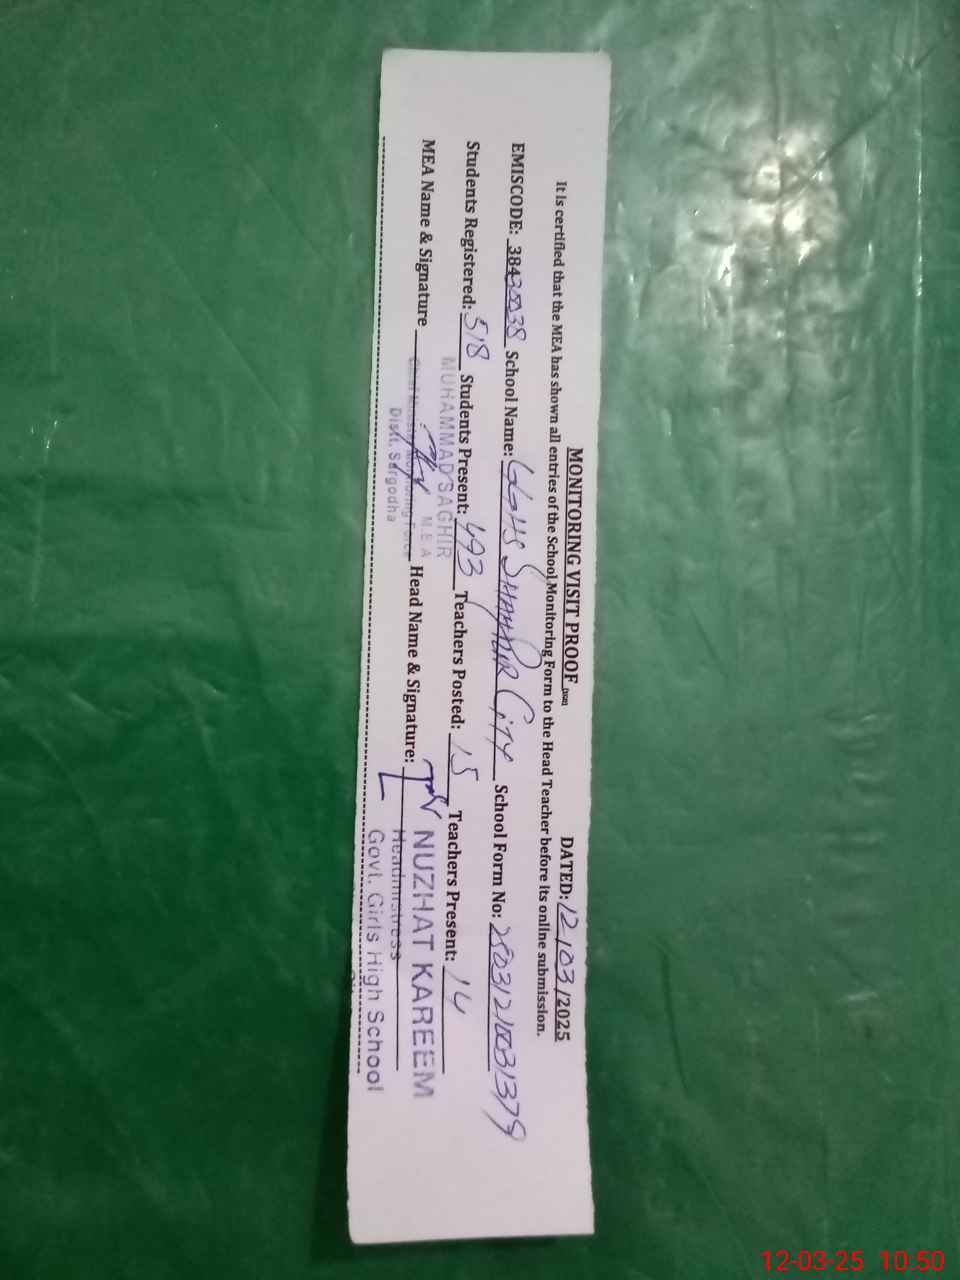 MONITORING VISIT PROOF (2021) DATED: 12/03/2025
It is certified that the MEA has shown all entries of the School Monitoring Form to the Head Teacher before its online submission.
EMISCODE: 38430038 School Name: GGHS SHAHPUR CITY School Form No:
Students Registered: 518 Students Present: 493 Teachers Posted: 15 Teachers Present: 14
MUHAMMAD SAGHIR
M.E.A
MEA Name & Signature Head Name & Signature:
Chief Minister Monitoring Force
Distt. Sargodha
NUZHAT KAREEM
Headmistress
Govt. Girls High School
12-03-25 10:50